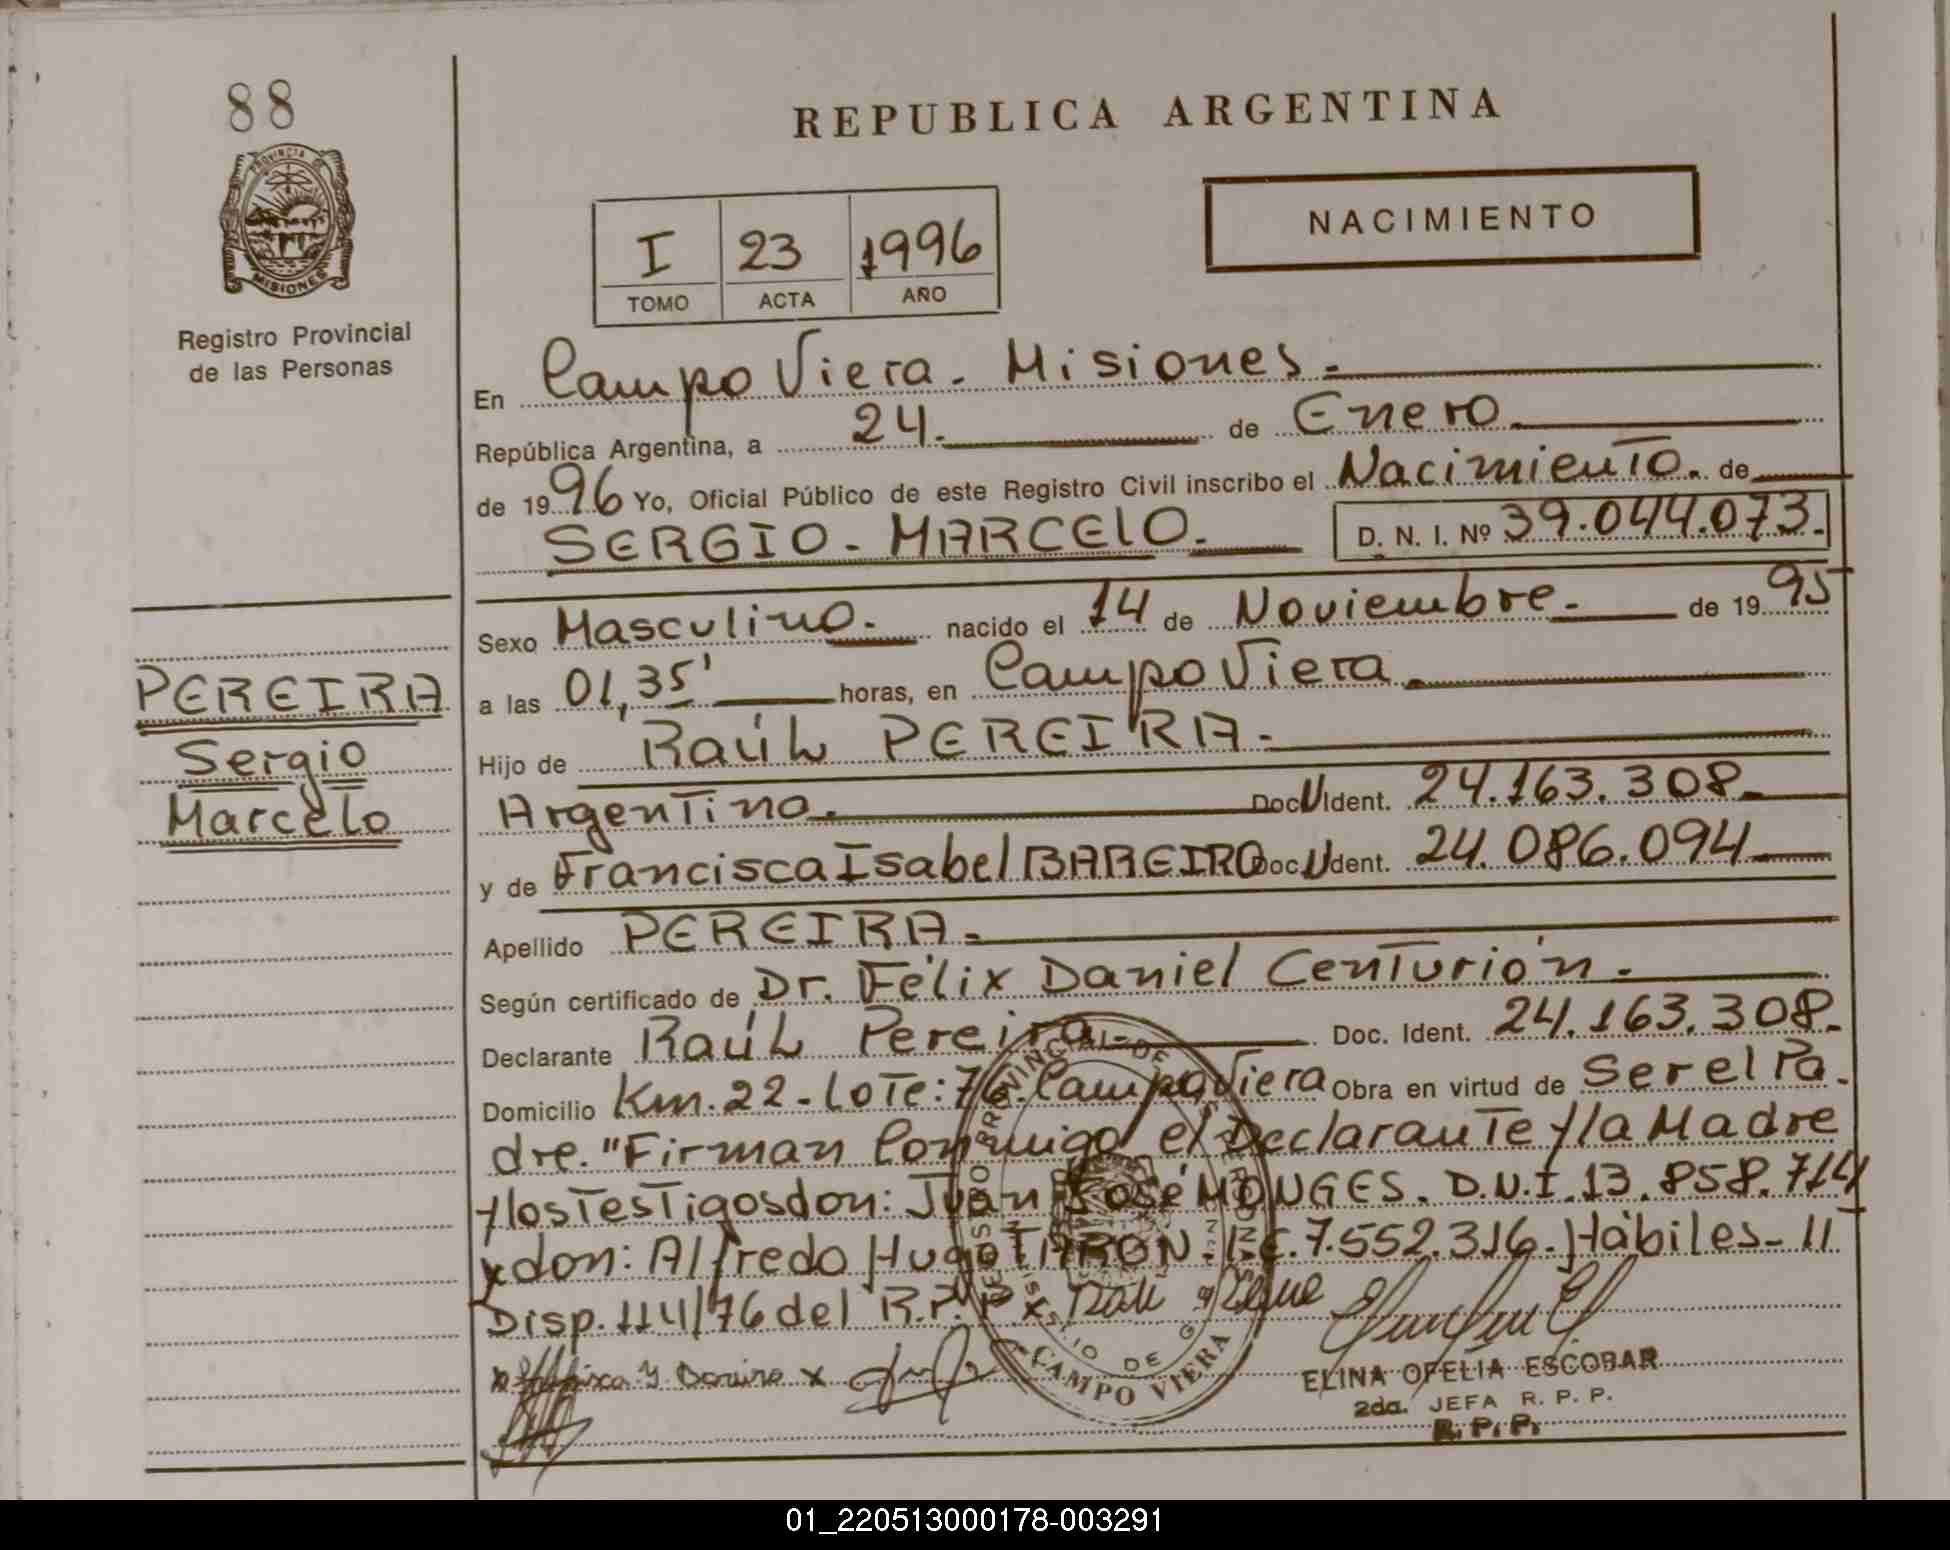 88
REPUBLICA ARGENTINA
PROVINCIA DE
MISIONES
Registro Provincial
de las Personas
I 23 1996
TOMO ACTA AÑO
NACIMIENTO
En Campo Viera. Misiones.
República Argentina, a 24. de Enero
de 1996 Yo, Oficial Público de este Registro Civil inscribo el Nacimiento. de
SERGIO. MARCElO. D. N. I. Nº 39.044.073.
Sexo Masculino. nacido el 14 de Noviembre. de 1995
a las 01,35' horas, en Campo Viera
Hijo de Raúl PEREIRA.
Argentino. Doc. U Ident. 24.163.308
y de Francisca Isabel BAREIRO Doc. U Ident. 24.086.094
Apellido PEREIRA.
Según certificado de Dr. Félix Daniel Centurión.
Declarante Raúl Pereira. Doc. Ident. 24.163.308.
Domicilio Km. 22 - lote: 76. Campo Viera Obra en virtud de Ser el Pa.
dre. "Firman Conmigo el Declarante y la Madre
y los Testigos don: Juan José MONGES. D.N.I. 13.858.714
y don: Alfredo Hugo TARON. 7.552.316. Hábiles - 11
Disp. 114/76 del R.P.P. x
x
PEREIRA
Sergio
Marcelo
CAMPO VIERA
ELINA OFELIA ESCOBAR
2da. JEFA R. P. P.
R. P. P.
01_220513000178-003291